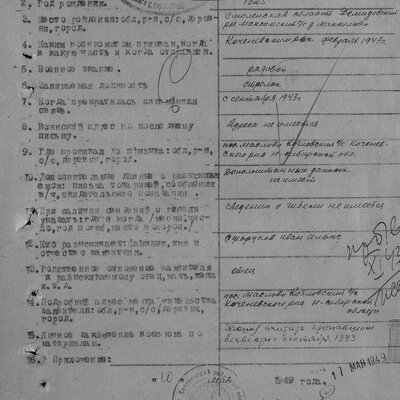 2. Год рождения.
1925
3. Место рождения: обл, р-н, с/с, деревня, город.
Смоленская область Демидовский
4. Каким военкоматом призван, когда
в какую часть и когда отправлен.
Коченевским рвк февраль 1943 г.
5. Военское звание.
рядовой
6. Занимаемая должность
стрелок
7. Когда прекратилась письменная
связь.
с сентября 1943 г.
8. Воинский адрес по последнему
письму.
Адреса не имеется
9. Где проживал до призыва: обл, р-н,
с/с, деревня, город.
пос. Маслово Козловский с/с Коченев-
ского р-на Н-сибирской обл.
10. Дополнительные данные о разыскива-
емом: письма товарищей, сообщения
в/ч, свидетельские показания
дополнительных данных
не имеет
11. При наличии сведений о гибели
указать: где и когда / месяц, чис-
ло, год погиб, место похорон./
сведении о гибели не имеется
12. Кто разыскивает: фамилия, имя и
отчество заявителя.
иван
13. Родственное отношение заявителя
к разыскиваемому отец, мать, жена
и. т. д.
отец
14. Подробный адрес места жительства
заявителя: обл, р-н, с/с, деревня,
город.
пос. Маслово Козловский с/с
Коченевского р-на Н-сибирской
области
15. Личное заключение военкома по
материалам.
считать пропавшим
без вести с сентября 1943
16. Приложение:
"10" мая 1949 года.
17 МАЙ 1949